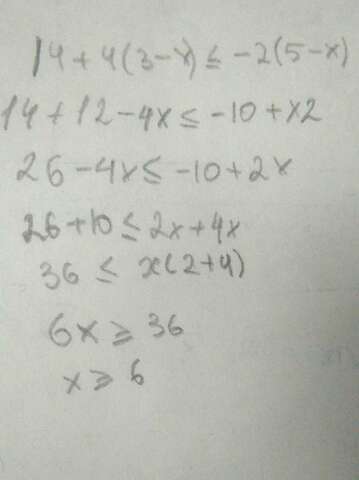 14+4(3-x)≤-2(5-x)
14+12-4x≤-10+x2
26-4x≤-10+2x
26+10≤2x+4x
36≤x(2+4)
6x≥36
x≥6